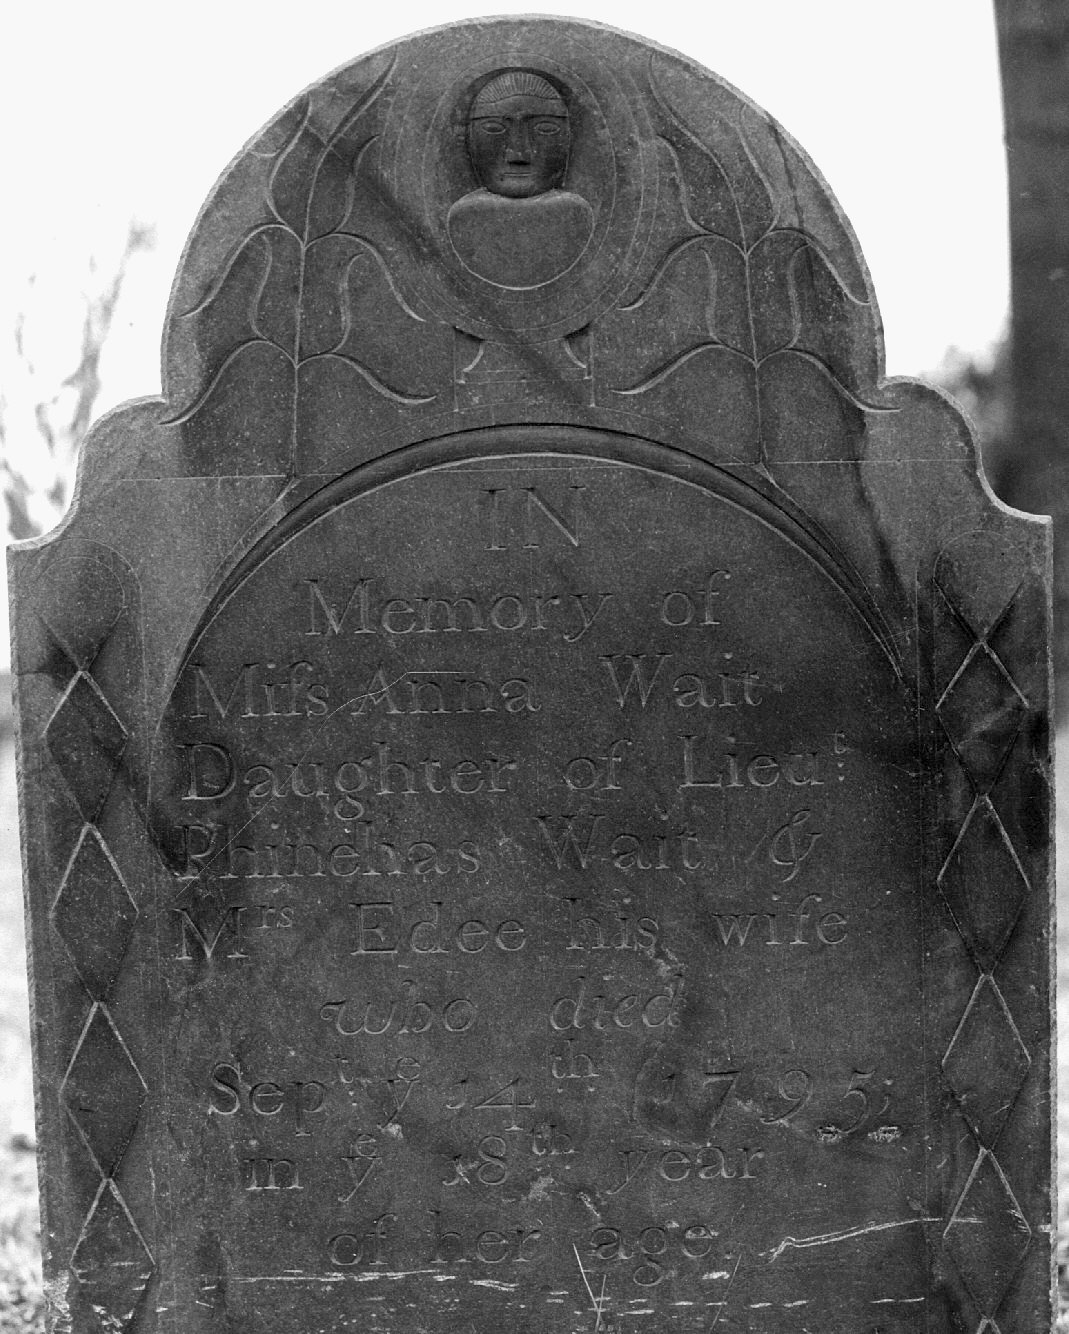 IN
Memory of
Miſs Anna Wait
Daughter of Lieuᵗ.
Phinehas Wait &
Mʳˢ Edee his wife
who died
Sepᵗ. yᵉ 14ᵗʰ. 1795;
in yᵉ 18ᵗʰ. year
of her age.